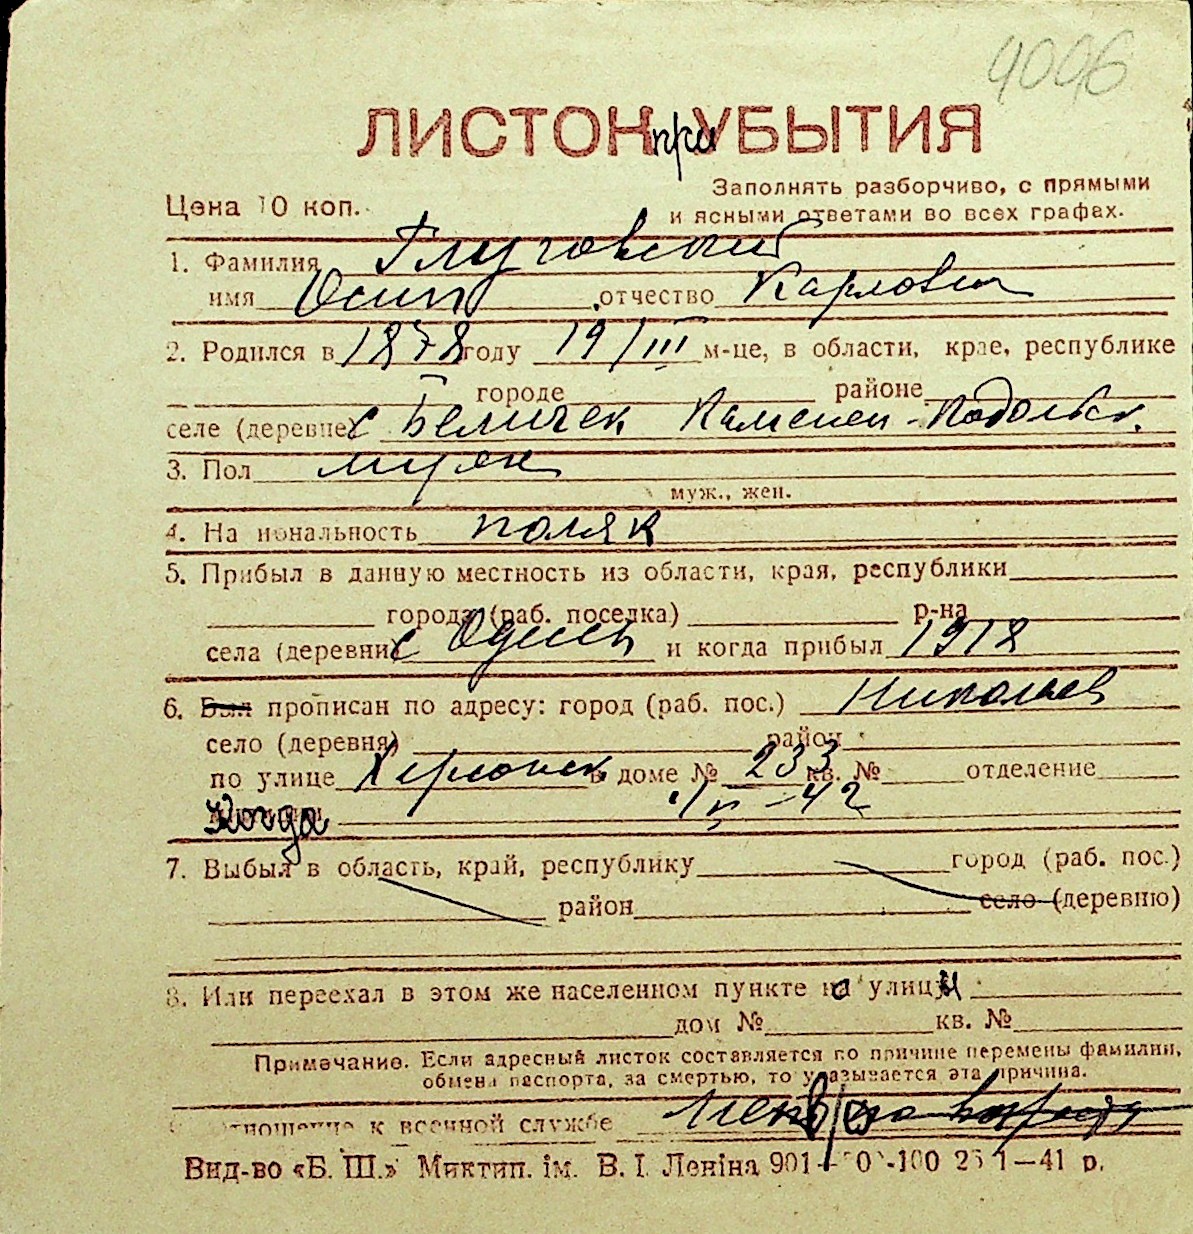 4006
ЛИСТОК при УБЫТИЯ
Цена 10 коп.
Заполнять разборчиво, с прямыми
и ясными ответами во всех графах.
1. Фамилия Глуговский
имя Осип отчество Карлович
2. Родился в 1878 году 19/III м-це, в области, крае, республике
городе районе
селе (деревне) с Беличек Каменец-Подольск.
3. Пол муж
муж., жен.
4. Национальность поляк
5. Прибыл в данную местность из области, края, республики
города (раб. поселка) р-на
села (деревни) с и когда прибыл 1918
6. Был прописан по адресу: город (раб. пос.) Николаев
село (деревня) район
по улице Херсонск в доме № 233 кв. № отделение
Когда -42
7. Выбыл в область, край, республику город (раб. пос.)
район село (деревню)
8. Или переехал в этом же населенном пункте на улицу
дом № кв. №
Примечание. Если адресный листок составляется по причине перемены фамилии,
обмена паспорта, за смертью, то указывается эта причина.
отношение к военной службе
Вид-во «Б. Ш.» Миктип. ім. В. І. Леніна 901- -100 1—41 р.